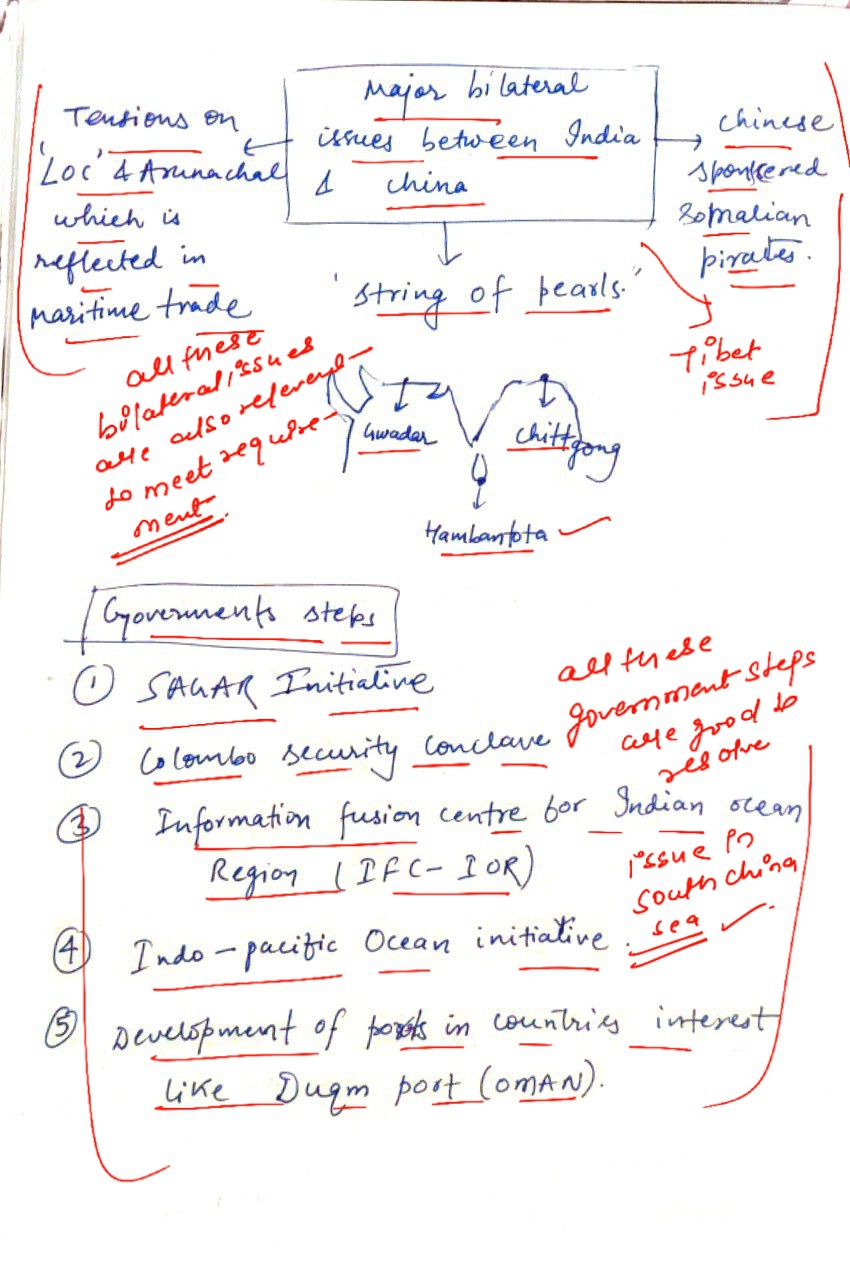 Major bilateral
issues between India
& China
Tensions on
'LOC' & Arunachal
which is
reflected in
maritime trade
chinese
sponsered
Somalian
pirates.
'string of pearls.'
Tibet
issue
all these
bilateral issues
are also relevent
to meet require-
ment.
Gwadar
Chittgong
Hambantota
Goverments steps
① SAGAR Initiative
② Colombo security conclave
③ Information fusion centre for Indian ocean
Region (IFC-IOR)
④ Indo-pacific Ocean initiative.
⑤ Development of ports in countries interest
like Duqm port (OMAN).
all these
government steps
are good to
resolve
issue in
south china
sea